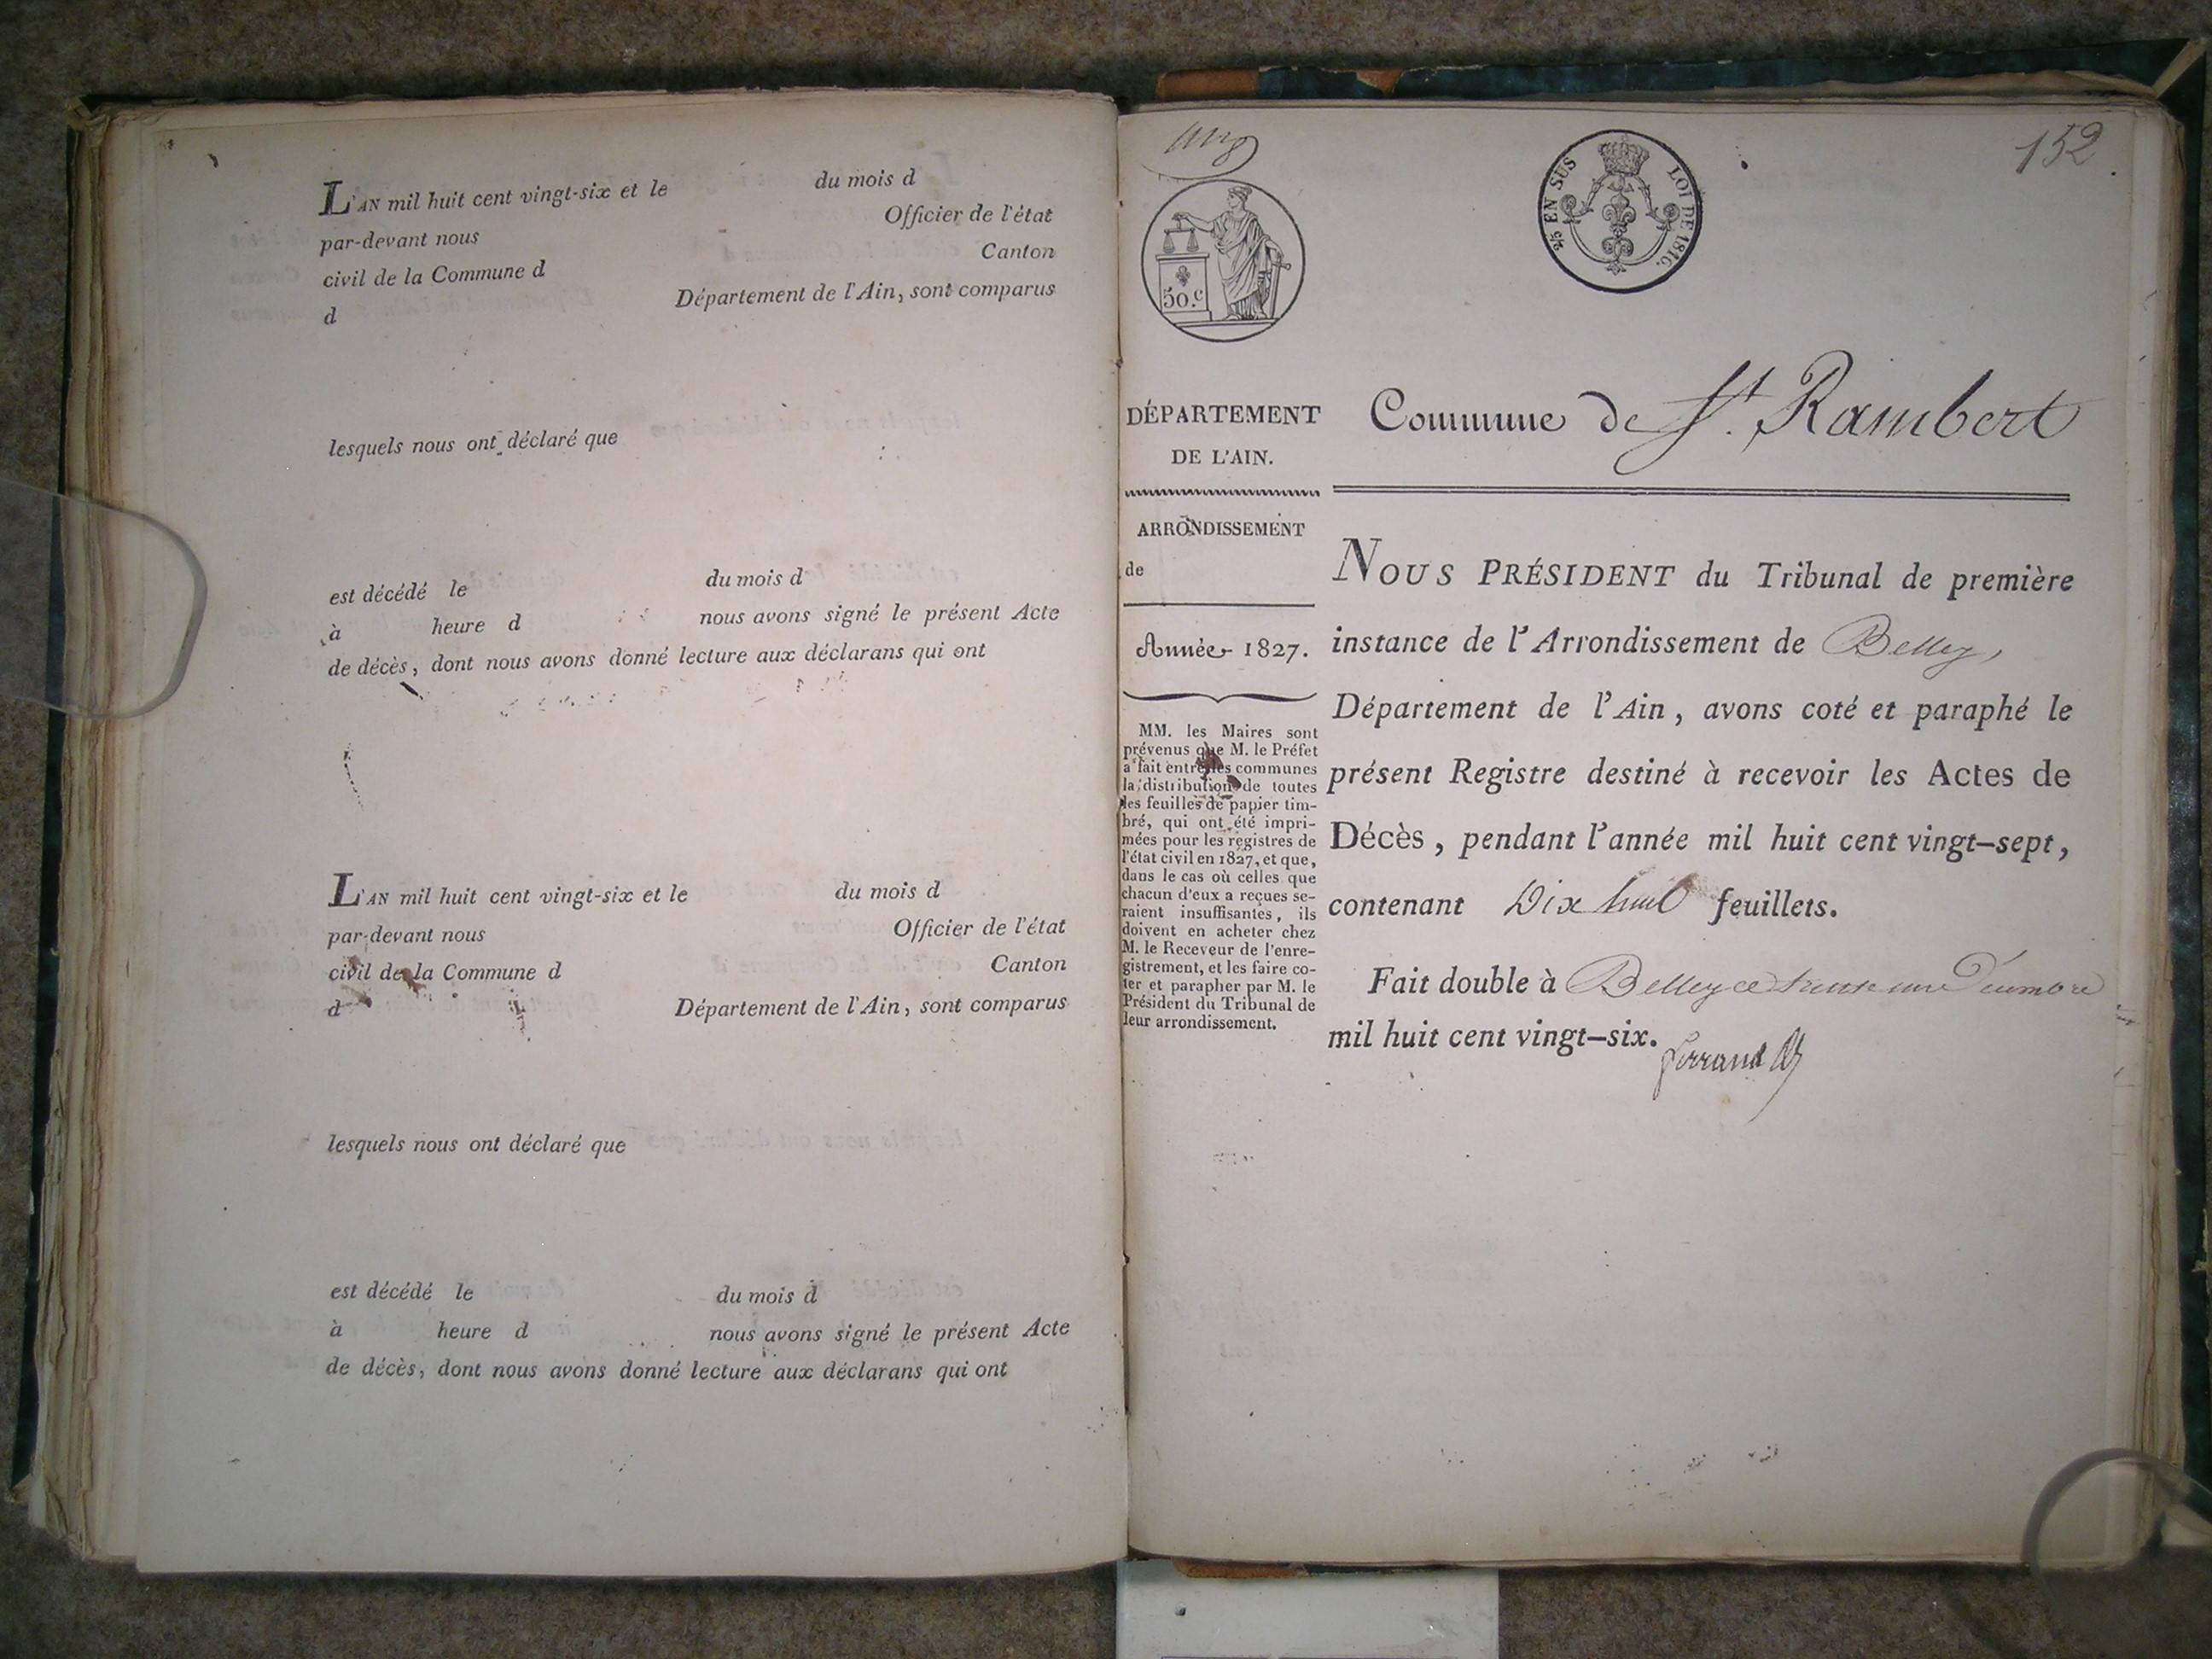 L'AN mil huit cent vingt-six et le du mois d
par-devant nous Officier de l'état
civil de la Commune d Canton
d Département de l'Ain, sont comparus
lesquels nous ont déclaré que
est décédé le du mois d
à heure d nous avons signé le présent Acte
de décès, dont nous avons donné lecture aux déclarans qui ont
L'AN mil huit cent vingt-six et le du mois d
par-devant nous Officier de l'état
civil de la Commune d Canton
d Département de l'Ain, sont comparus
lesquels nous ont déclaré que
est décédé le du mois d
à heure d nous avons signé le présent Acte
de décès, dont nous avons donné lecture aux déclarans qui ont
152.
50.c
EN SUS
LOI DE 1816.
DÉPARTEMENT
DE L'AIN.
ARRONDISSEMENT
de
Année 1827.
MM. les Maires sont
prévenus que M. le Préfet
a fait entre les communes
la distribution de toutes
les feuilles de papier tim-
bré, qui ont été impri-
mées pour les registres de
l'état civil en 1827, et que,
dans le cas où celles que
chacun d'eux a reçues se-
raient insuffisantes, ils
doivent en acheter chez
M. le Receveur de l'enre-
gistrement, et les faire co-
ter et parapher par M. le
Président du Tribunal de
leur arrondissement.
Commune de St. Rambert
NOUS PRÉSIDENT du Tribunal de première
instance de l'Arrondissement de Belley,
Département de l'Ain, avons coté et paraphé le
présent Registre destiné à recevoir les Actes de
Décès, pendant l'année mil huit cent vingt-sept,
contenant Dix huit feuillets.
Fait double à Belley ce trente une Décembre
mil huit cent vingt-six.